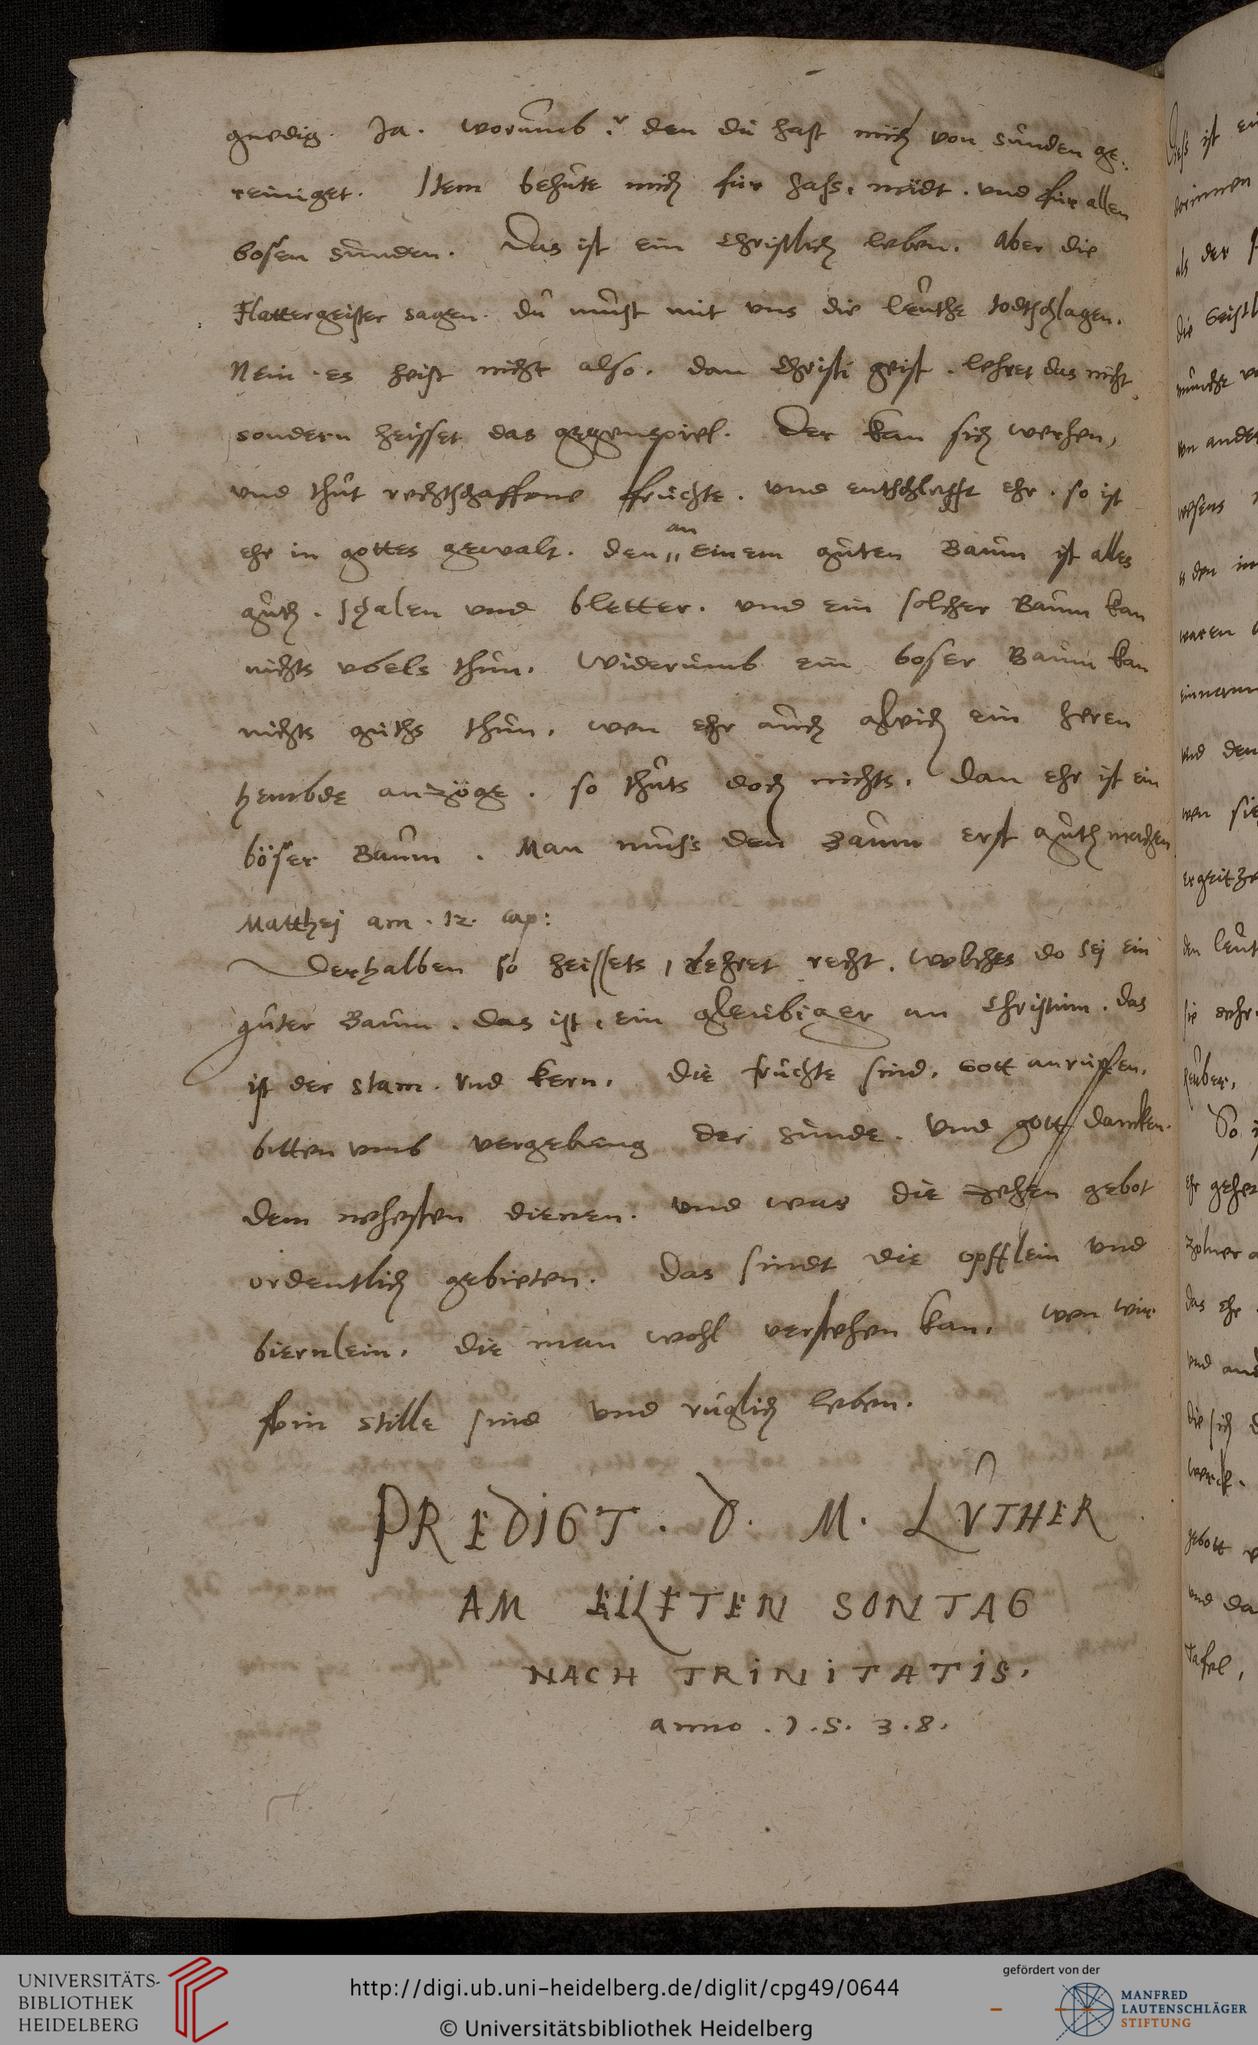 gnedig. Ja. worumb? den du hast mich von sunden ge:
reiniget. Item behute mich fur hass, neidt. und fur allen
bosen sunden. Das ist ein Christlich leben. Aber die
Flattergeister sagen. du must mit uns die leuthe todtschlagen.
Nein. es heist nicht also. dan Christi geist. lehret das nicht
sondern heisset das gegenspiel. Der kan sich
und thut rechtschaffene fruchte. und entschlefft ehr. so ist
ehr in gottes gewalt. den an einem guten Baum ist alles
guth. schalen und bletter. und ein solcher Baum kan
nichts ubels thun. Widerumb ein boser Baum kan
nichts guths thun. wen ehr auch gleich ein heren
hembde anzöge. so thuts doch nichts. dan ehr ist ein
böser Baum. Man muss den Baum erst guth machen
Matthej am .12. cap:
Derhalben so heissets, lehret recht. welches do sej ein
guter Baum. das ist, ein gleubiger an Christum. das
ist der stam. und kern. die fruchte sind. Gott anruffen.
bitten umb vergebung der sunde. und gott dancken.
dem nehesten dienen. und was die zehen gebot
ordentlich gebieten. das sindt die opfflein und
biernlein. die man wohl verstehen kan. wen wir
fein stille sind und ruglich leben.
PREDIGT. D. M. LUTHER
AM EILFTEN SONTAG
NACH TRINITATIS.
anno .1.5.3.8.
UNIVERSITÄTS-
BIBLIOTHEK
HEIDELBERG
http://digi.ub.uni-heidelberg.de/diglit/cpg49/0644
© Universitätsbibliothek Heidelberg
gefördert von der
MANFRED
LAUTENSCHLÄGER
STIFTUNG